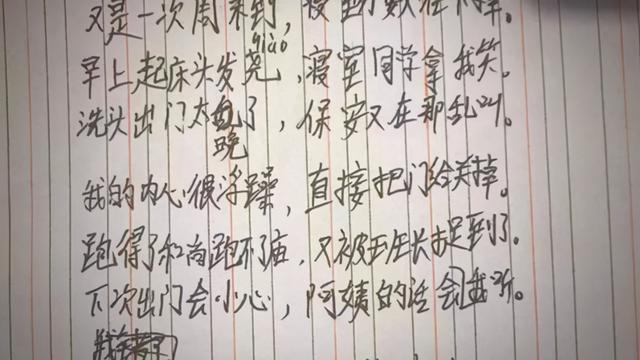 又是一次周末到,
qiào
早上起床头发尧,寝室同学拿我笑。
洗头出门太晚了,保安又在那乱叫。
我的内心很浮躁,直接把门给关掉。
跑得了和尚跑不了庙,又被班长捉到了。
下次出门会小心,阿姨的话会我听。